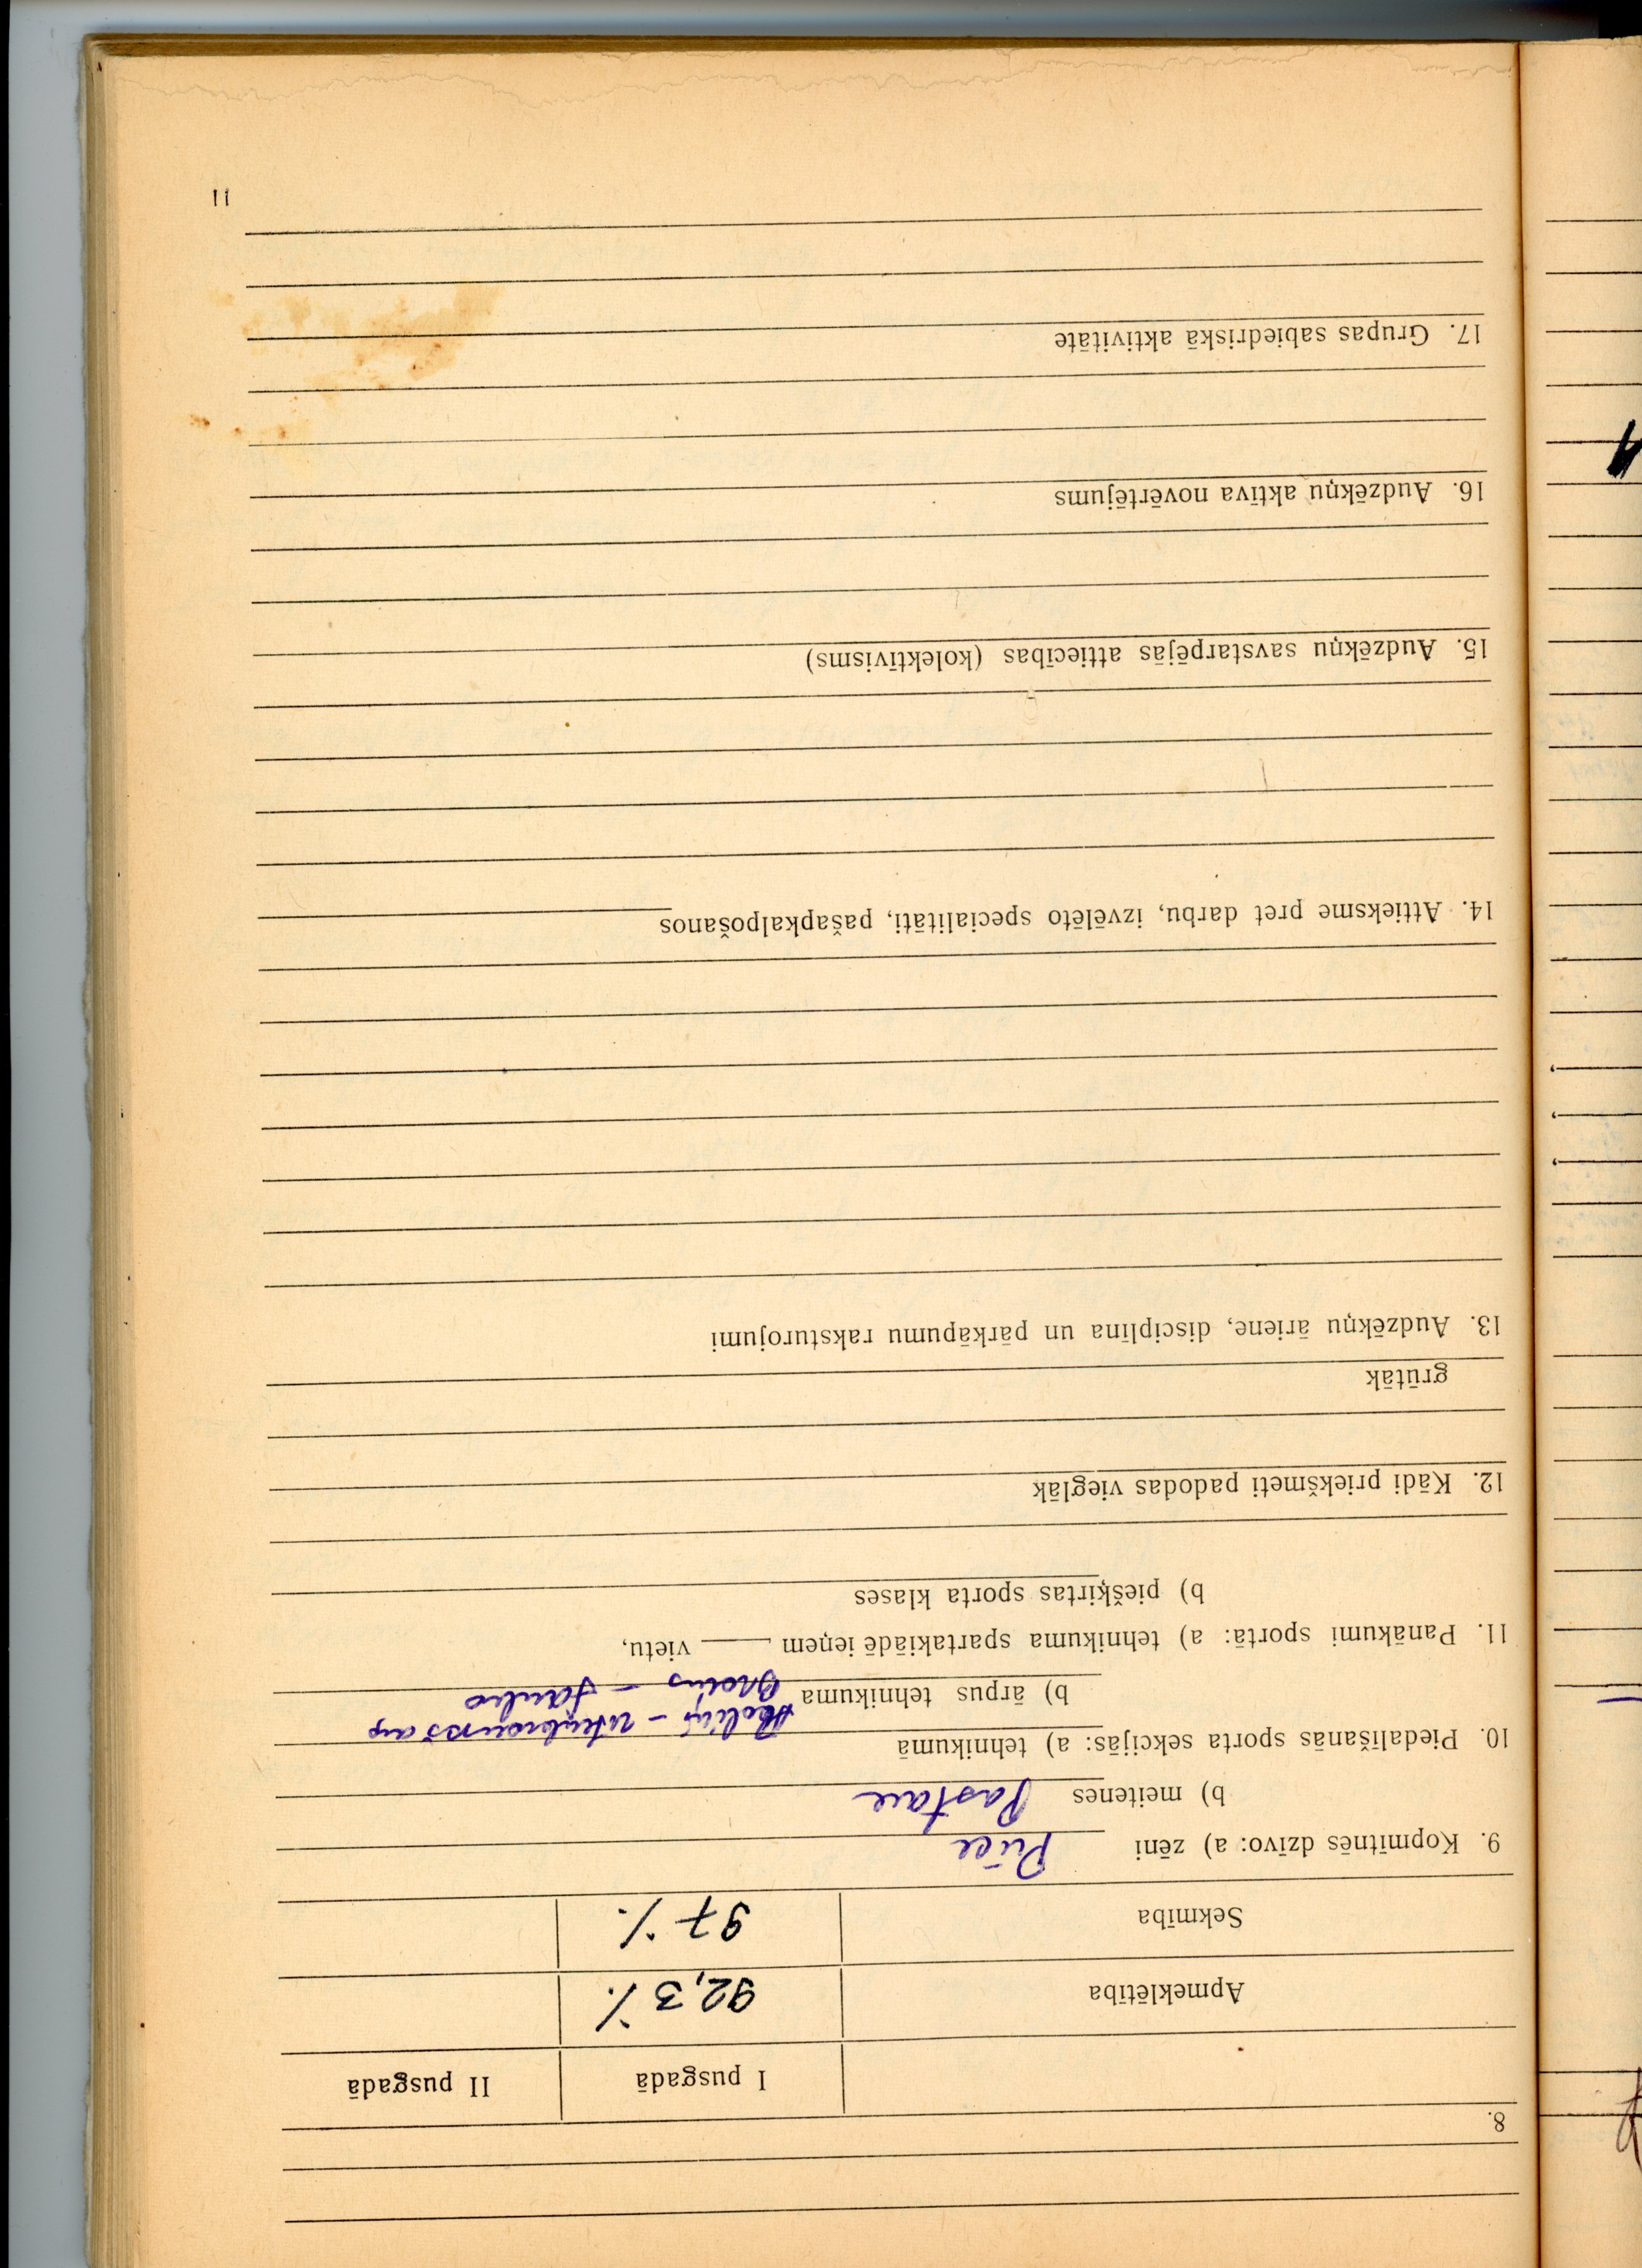 8.
I pusgadā II pusgadā
Apmeklētība 92,3 %
Sekmība 97 %
9. Kopmītnēs dzīvo: a) zēni Pūce
b) meitenes Pastare
10. Piedalīšanās sporta sekcijās: a) tehnikumā
Āboliņš – riteņbraukšana
b) ārpus tehnikuma
11. Panākumi sportā: a) tehnikuma spartakiādē ieņem ____ vietu,
b) piešķirtas sporta klases
12. Kādi priekšmeti padodas vieglāk
grūtāk
13. Audzēkņu āriene, disciplīna un pārkāpumu raksturojumi
14. Attieksme pret darbu, izvēlēto specialitāti, pašapkalpošanos
15. Audzēkņu savstarpējās attiecības (kolektīvisms)
16. Audzēkņu aktīva novērtējums
17. Grupas sabiedriskā aktivitāte
11